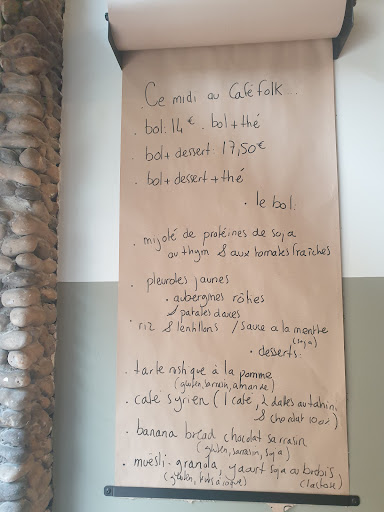 Ce midi au Café folk...
. bol: 14€ . bol + thé
. bol + dessert: 17,50€
. bol + dessert + thé
. le bol:
. mijoté de protéines de soja
au thym & aux tomates fraîches
. pleurotes jaunes
. aubergines rôties
patates douces
. riz & lentillons / sauce à la menthe
(soja)
. desserts:
. tarte rustique à la pomme
(gluten, sarrasin, amande)
. café syrien (1 café, 2 dattes au tahin
& chocolat 100%)
. banana bread chocolat sarrasin
(gluten, sarrasin, soja)
. muësli-granola, yaourt soja ou brebis
(gluten, fruits à coque) (lactose)